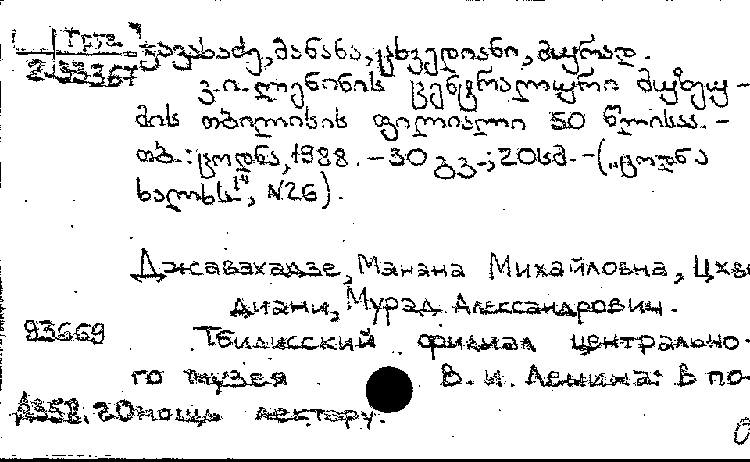 ჯავახაძე, მანანა, ცხვედიანი, მურად.
ვ. ი. ლენინის ცენტრალური მუზეუ-
მის თბილისის ფილიალი 50 წლისაა. -
თბ.: ცოდნა, 1988. - 30 გვ.; 20სმ. - („ცოდნა
ხალხს", N26).
Джавахадзе, Манана Михайловна, Цхве
диани, Мурад Александрович.
93669 Тбилисский филиал центрально-
го музея В. И. Ленина: В по-
мощь лектору.